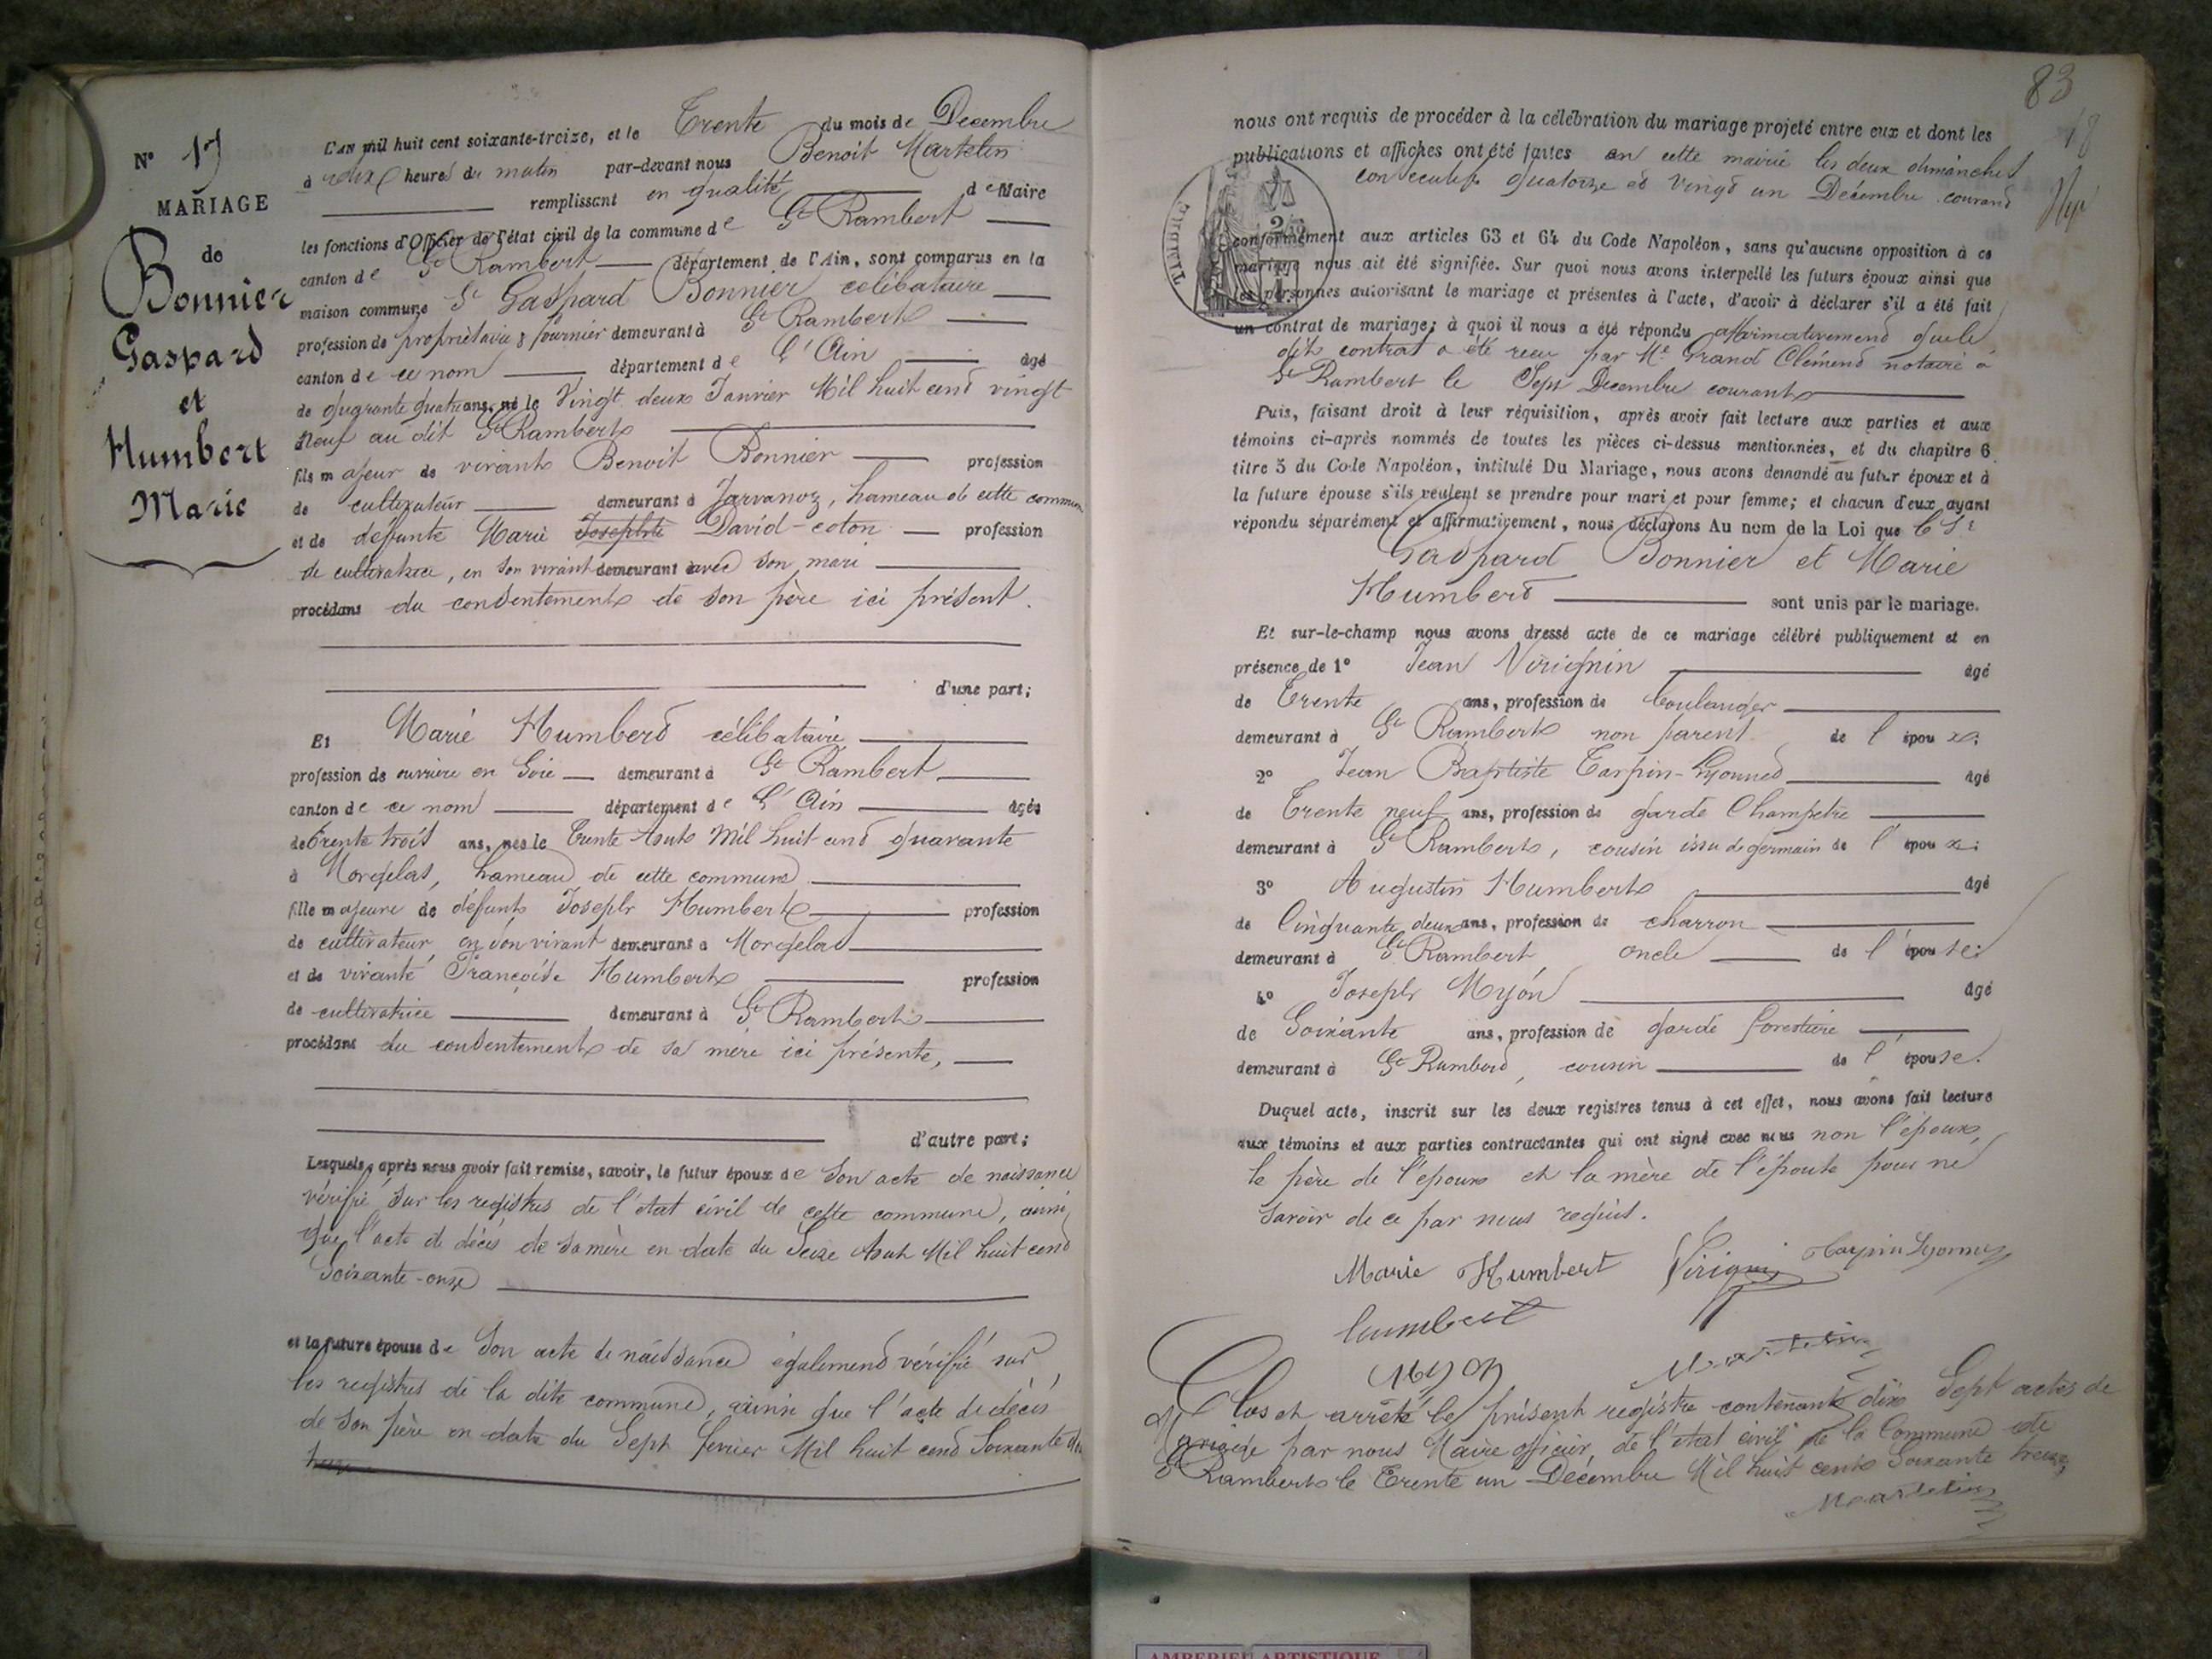 N° 17
MARIAGE
de
Bonnier
Gaspard
et
Humbert
Marie
L'AN mil huit cent soixante-treize, et le Trente du mois de Décembre
à heures du matin par-devant nous Benoit Martelin
remplissant en qualité de Maire
les fonctions d'Officier de l'état civil de la commune de St Rambert
canton de St Rambert département de l'Ain, sont comparus en la
maison commune Sr Gaspard Bonnier célibataire
profession de propriétaire & fournier demeurant à St Rambert
canton de ce nom département de L'Ain âgé
de quarante quatre ans, né le Vingt deux Janvier Mil huit cent vingt
neuf au dit St Rambert
fils majeur de vivant Benoit Bonnier profession
de cultivateur demeurant à Javanoz, hameau de cette commune
et de défunte Marie Josephte David-coton profession
de cultivatrice, en son vivant demeurant avec son mari
procédant du consentement de son père ici présent.
d'une part;
Et Marie Humbert célibataire
profession de ouvrière en Soie demeurant à St Rambert
canton de ce nom département de L'Ain âgée
de Trente trois ans, née le Trente Août Mil huit cent quarante
à Morgelas, hameau de cette commune
fille majeure de défunt Joseph Humbert profession
de cultivateur, en son vivant demeurant à Morgelas
et de vivante Françoise Humbert profession
de cultivatrice demeurant à St Rambert
procédant du consentement de sa mère ici présente,
d'autre part;
Lesquels, après nous avoir fait remise, savoir, le futur époux de Son acte de naissance
vérifié sur les registres de l'état civil de cette commune, ainsi
que l'acte de décès de sa mère en date du Seize Août Mil huit cent
Soixante-onze
et la future épouse de Son acte de naissance également vérifié sur
les registres de la dite commune, ainsi que l'acte de décès
de son père en date du Sept février Mil huit cent Soixante
83
18
nous ont requis de procéder à la célébration du mariage projeté entre eux et dont les
publications et affiches ont été faites en cette mairie les deux dimanches
consécutifs quatorze et vingt un Décembre courant
TIMBRE
conformément aux articles 63 et 64 du Code Napoléon, sans qu'aucune opposition à ce
mariage nous ait été signifiée. Sur quoi nous avons interpellé les futurs époux ainsi que
les personnes autorisant le mariage et présentes à l'acte, d'avoir à déclarer s'il a été fait
un contrat de mariage; à quoi il nous a été répondu affirmativement que le
dit contrat a été reçu par Me Grand Clément notaire à
St Rambert le Sept Décembre courant
Puis, faisant droit à leur réquisition, après avoir fait lecture aux parties et aux
témoins ci-après nommés de toutes les pièces ci-dessus mentionnées, et du chapitre 6
titre 5 du Code Napoléon, intitulé Du Mariage, nous avons demandé au futur époux et à
la future épouse s'ils veulent se prendre pour mari et pour femme; et chacun d'eux ayant
répondu séparément et affirmativement, nous déclarons Au nom de la Loi que le Sr
Gaspard Bonnier et Marie
Humbert sont unis par le mariage.
Et sur-le-champ nous avons dressé acte de ce mariage célébré publiquement et en
présence de 1° Jean Virignin âgé
de Trente ans, profession de boulanger
demeurant à St Rambert non parent de l'époux;
2° Jean Baptiste Tarpin-Lyonnet âgé
de Trente neuf ans, profession de garde Champetre
demeurant à St Rambert, cousin issu de germain de l'époux;
3° Augustin Humbert âgé
de Cinquante deux ans, profession de charron
demeurant à St Rambert oncle de l'épouse;
4° Joseph Myon âgé
de Soixante ans, profession de garde forestière
demeurant à St Rambert, cousin de l'épouse.
Duquel acte, inscrit sur les deux registres tenus à cet effet, nous avons fait lecture
aux témoins et aux parties contractantes qui ont signé avec nous non l'époux,
le père de l'époux et la mère de l'épouse pour ne
savoir de ce par nous requis.
Marie Humbert Virignin Tarpin Lyonnet
humbert
Myon Martelin
Clos et arrêté le présent registre contenant dix Sept actes de
Mariage par nous Maire officier de l'état civil de la Commune de
St Rambert le Trente un Décembre Mil huit cent Soixante treize
Martelin
AMBERIEU ARTISTIQUE